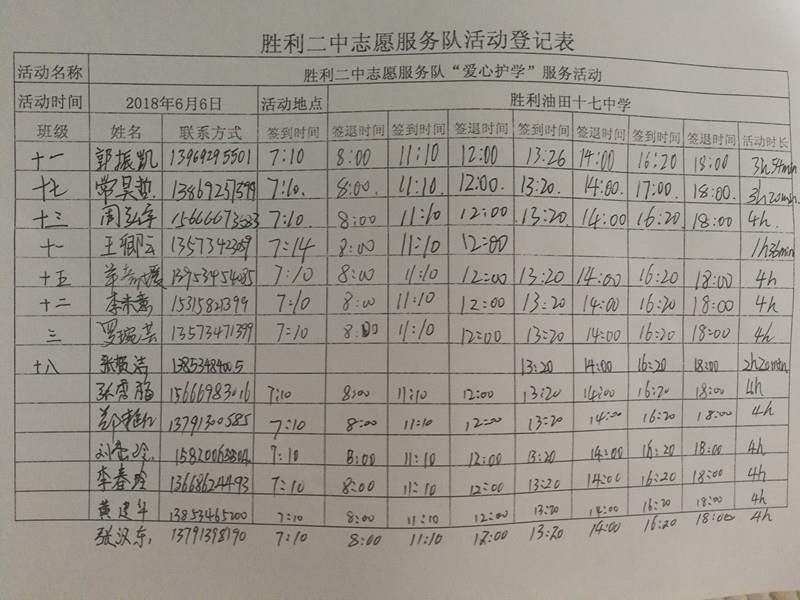 胜利二中志愿服务队活动登记表
活动名称 胜利二中志愿服务队“爱心护学”服务活动
活动时间 2018年6月6日 活动地点 胜利油田十七中学
班级 姓名 联系方式 签到时间 签退时间 签到时间 签退时间 签到时间 签退时间 签到时间 签退时间 活动时长
十一 郭振凯 13969295501 7:10 8:00 11:10 12:00 13:26 14:00 16:20 18:00 3h54min
十七 常昊哲 7:10. 8:00. 11:10. 12:00. 13:20. 14:00. 17:00. 18:00. 3h20min
十三 7:10. 8:00 11:10 12:00 13:20 14:00 16:20 18:00 4h.
十一 王卿云 7:14 8:00 11:10 12:00 1h36min
十五 13953954085 7:10 8:00 11:10 12:00 13:20 14:00 16:20 18:00 4h
十二 15315821399 7:10 8:00 11:10 12:00 13:20 14:00 16:20 18:00 4h
三 罗琬芸 13573471399 7:10 8:00 11:10 12:00 13:20 14:00 16:20 18:00 4h
十八 13:20 14:00 16:20 18:00 2h20min
15666983016 7:10 8:00 11:10 12:00 13:20 14:00 16:20 18:00 4h
13791300585 7:10 8:00 11:10 12:00 13:20 14:00 16:20 18:00 4h
7:10 8:00 11:10 12:00 13:20 14:00 16:20 18:00 4h
李春玲 13668624493 7:10 8:00 11:10 12:00 13:20 14:00 16:20 18:00 4h
黄建华 13853465200 7:10 8:00 11:10 12:00 13:20 14:00 16:20 18:00 4h
张汉东 13791398190 7:10 8:00 11:10 12:00 13:20 14:00 16:20 18:00 4h